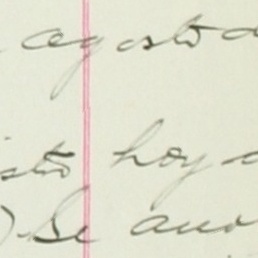 agosto d
isto hoy d
) Se ano